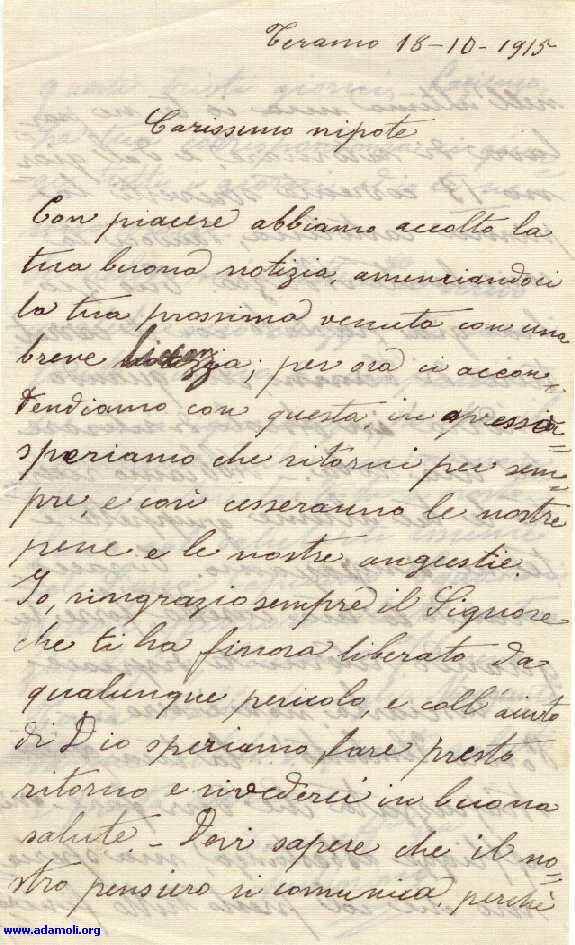 Teramo 18-10-1915
Carissimo nipote
Con piacere abbiamo accolto la
tua buona notizia, annunciandoci
la tua prossima venuta con una
breve licenza; per ora ci accon-
tendiamo con questa, in apressio=
speriamo che ritorni per sem=
pre, e così cesseranno le nostre
pene e le nostre angustie.
Io, ringrazio sempre il Signore
che ti ha finora liberato da
qualunque pericolo, e coll'aiuto
di Dio speriamo fare presto
ritorno e rivederci in buona
salute. - Devi sapere che il no=
stro pensiero si comunica, perchè
www.adamoli.org